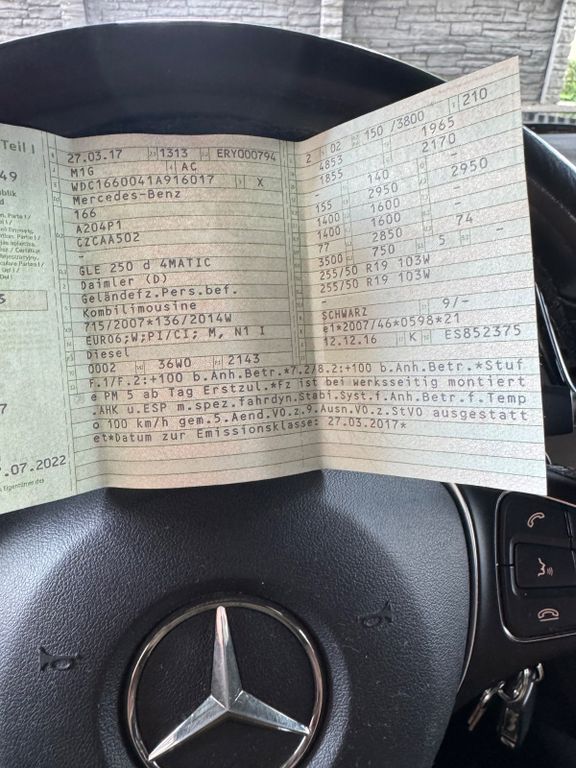 Teil I
49
27.03.17 1313 ERY000794
M1G AC
WDC1660041A916017 X
Mercedes-Benz
166
A204P1
CZCAA502
-
GLE 250 d 4MATIC
Daimler (D)
Geländefz.Pers.bef.
Kombilimousine
715/2007*136/2014W
EURO6;W;PI/CI; M, N1 I
Diesel
0002 36W0 2143
2 02 150 /3800 210
4853 1965
1855 2170
140 -
155 2950 2950
1400 1600 -
1400 1600 -
77 2850 74
3500 750 5 -
255/50 R19 103W
255/50 R19 103W
-
SCHWARZ 9/-
e1*2007/46*0598*21
12.12.16 K ES852375
F.1/F.2:+100 b.Anh.Betr.*7.2/8.2:+100 b.Anh.Betr.*Stuf
e PM 5 ab Tag Erstzul.*fz ist bei werksseitig montiert
.AHK u.ESP m.spez.fahrdyn.Stabi.Syst.f.Anh.Betr.f.Temp
o 100 km/h gem.5.Aend.VO.z.9.Ausn.VO.z.StVO ausgestatt
et*Datum zur Emissionsklasse: 27.03.2017*
.07.2022